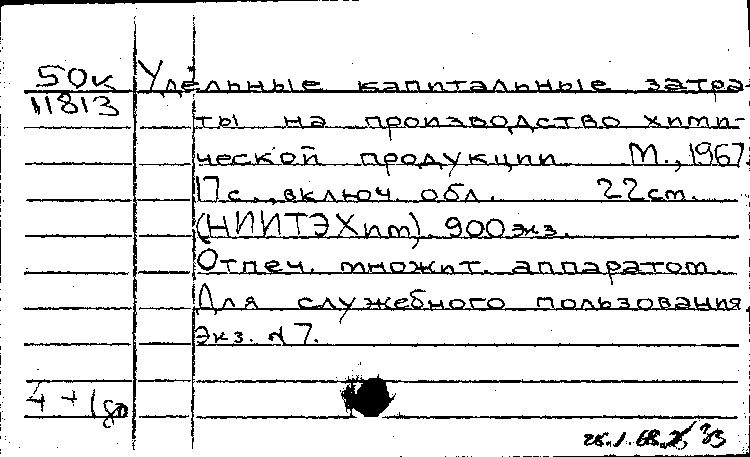 50к Удельные капитальные затра-
11813
ты на производство хими-
ческой продукции М., 1967.
17с., включ. обл. 22 cm.
(НИИТЭХим). 900 экз.
Отпеч. множит. аппаратом.
Для служебного пользования.
Экз. №7.
4 +